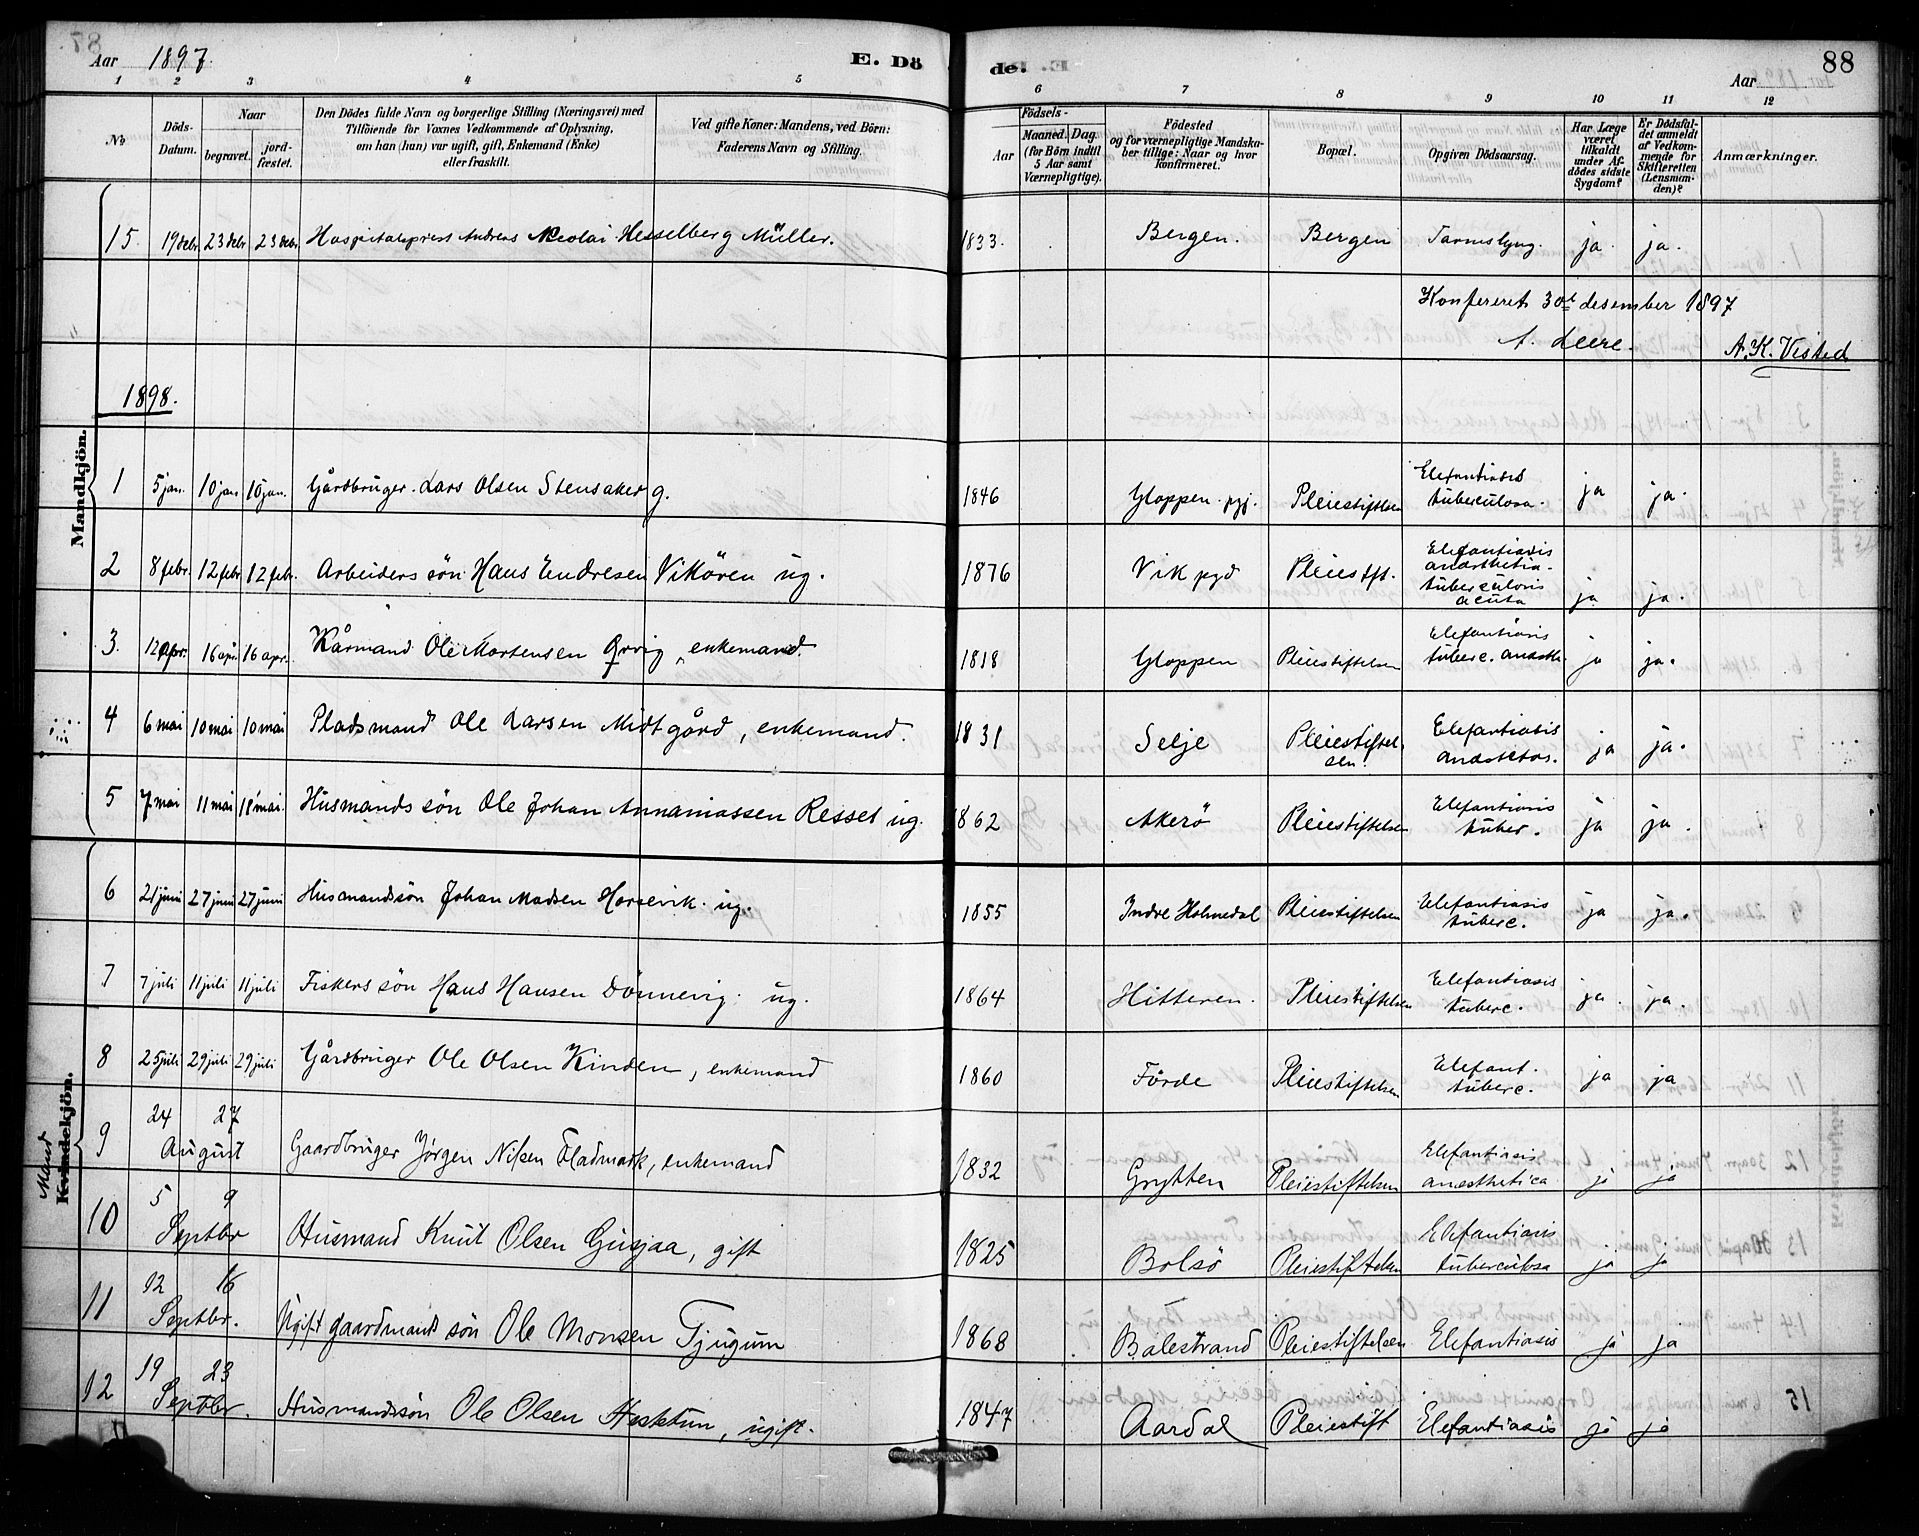 Aar 1897. E. Dö de. 88
Aar
1 2 3 4 5 6 7 8 9 10 11 12
No
Döds-Datum.
Naar
begravet.
jord-fæstet.
Den Dödes fulde Navn og borgerlige Stilling (Næringsvei) med
Tilföiende for Voxnes Vedkommende af Oplysning,
om han (hun) var ugift, gift, Enkemand (Enke)
eller fraskilt.
Ved gifte Koner: Mandens, ved Börn:
Faderens Navn og Stilling.
Födsels-
Aar
Maaned. Dag.
(for Börn indtil
5 Aar samt
Værnepligtige).
Födested
og for værnepligtige Mandska-
ber tillige: Naar og hvor
konfirmeret.
Bopæl.
Opgiven Dödsaarsag.
Har Læge
været
tilkaldt
under Af-
dödes sidste
Sygdom?
Er Dödsfal-
det anmeldt
af Vedkom-
mende for
Skifteretten
(Lensman-
den)?
Anmærkninger.
15. 19 debr. 23 debr. 23 debr. Hospitalsprest Andreas Nicolai Hesselberg Müller. 1833. Bergen. Bergen Tarmslyng. ja. ja.
Konfereret 30te desember 1897
A. K. Visted
1898.
Mandkjön.
1 5 jan. 10 jan 10 jan. Gårdbruger. Lars Olsen Stensaker g. 1846 Gloppen pgj. Pleiestiftelsen Elefantiasis tuberculosa. ja ja.
2 8 febr. 12 febr 12 febr. Arbeiders sön Hans Endresen Vikören ug. 1876 Vik pgd Pleiestft. Elefantiasis anæsthetia. tuberculosis acuta ja ja.
3. 12 apr. 16 apr. 16 apr. Kårmand Ole Mortensen Qrvig, enkemand. 1818 Gloppen Pleiestiftelsen Elefantiasis tuberc. anæsth. ja ja.
4 6 mai 10 mai 10 mai Pladsmand Ole Larsen Midtgård, enkemand. 1831 Selje Pleiestiftelsen. Elefantiasis anæstetos. ja ja.
5 7 mai 11 mai 11 mai. Husmands sön Ole Johan Annaniassen Resset ug. 1862 Akerö Pleiestiftelsen Elefantiasis tuber. ja ja.
Mand
Kvindekjön.
6 21 juni 27 juni 27 juni Husmandssön Johan Madsen Horsevik. ug. 1855 Indre Holmedal Pleiestiftelsen Elefantiasis tuberc. ja ja.
7 7 juli 11 juli 11 juli Fiskers sön Hans Hansen Dönnevig. ug. 1864 Hitteren. Pleiestiftelsen Elefantiasis tuberc. ja. ja.
8 25 juli 29 juli 29 juli Gårdbruger Ole Olsen Kinden, enkemand 1860 Förde Pleiestiftelsen Elefant. tuberc. ja ja
9 24 27 August Gaardbruger Jørgen Nilsen Fladmark, enkemand 1832 Grytten Pleiestiftelsen Elefantiasis anæsthetica. ja ja
10 5 9 Septbr Husmand Knut Olsen Gusjaa, gift 1825 Bolsö Pleiestiftelsen Elefantiasis tuberculosa ja ja
11 12 16 Septbr. Ugift gaardmands sön Ole Monsen Tjugum 1868 Balestrand Pleiestiftelsen Elefantiasis ja ja
12 19 23 Septbr. Husmandssön Ole Olsen Hestetun, ugift. 1847 Aardal Pleiestift Elefantiasis ja ja